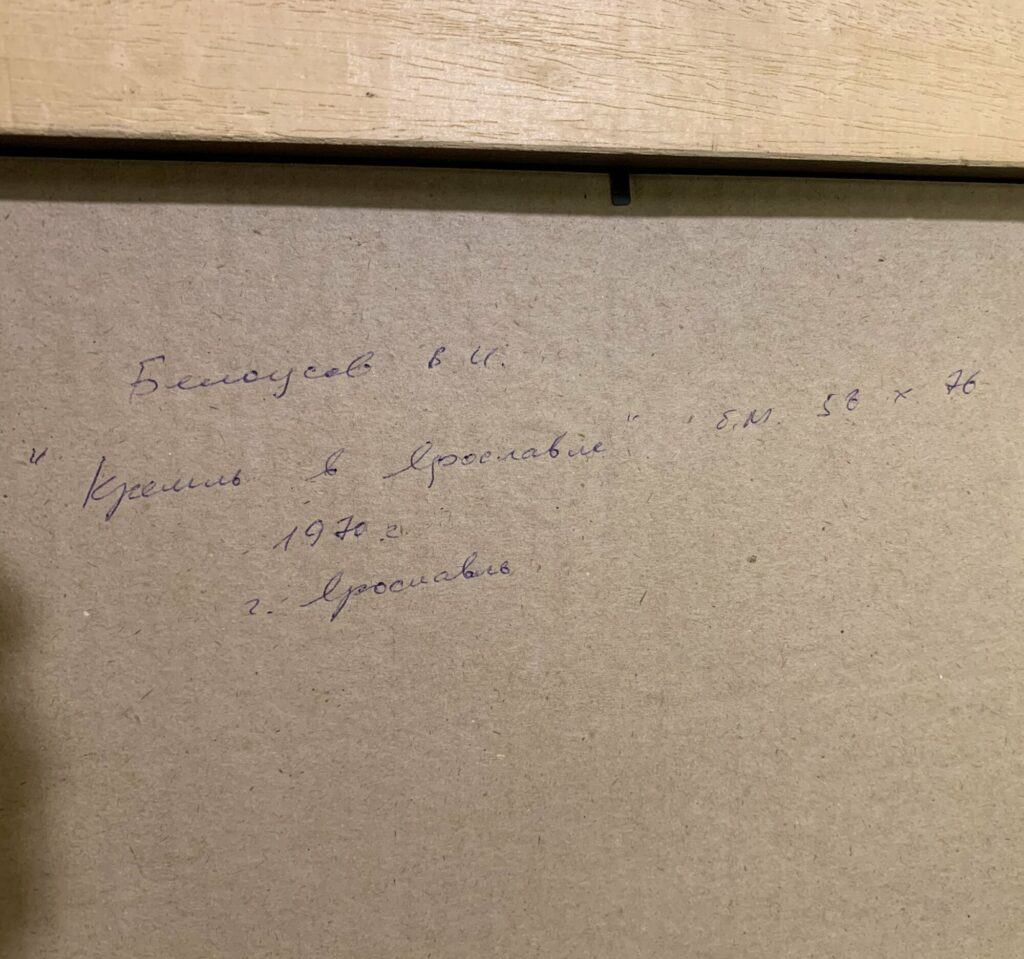 Белоусов В И.
"Кремль в Ярославле" б.м. 58 x 76
1970 г.
г. Ярославль